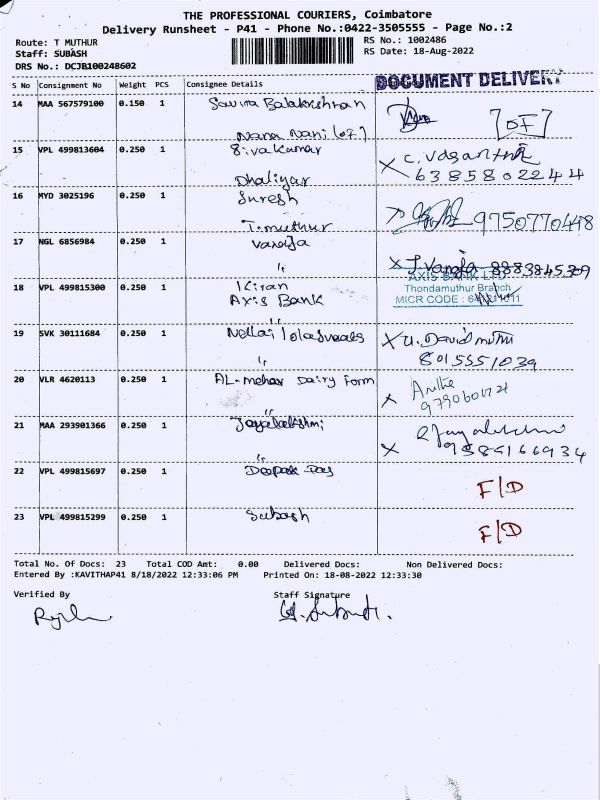 THE PROFESSIONAL COURIERS, Coimbatore
Delivery Runsheet - P41 - Phone No.:0422-3505555 - Page No.:2
Route: T MUTHUR
RS No.: 1002486
Staff: SUBASH
RS Date: 18-Aug-2022
DRS No.: DCJB100248602
S No Consignment No Weight PCS Consignee Details
DOCUMENT DELIVERY
14 MAA 567579100 0.150 1 Balakrishnan
Nana Nani (07)
15 VPL 499813604 0.250 1 Sivakumar
Dhaliyar
6385802244
16 MYD 3025196 0.250 1 Suresh
T.muthur
17 NGL 6856984 0.250 1 Vanaja
"
18 VPL 499815300 0.250 1 Kiran
Axis Bank
AXIS BANK LTD
Thondamuthur Branch
MICR CODE :
"
19 SVK 30111684 0.250 1 Nellai
X U. David muthu
"
8015551039
20 VLR 4620113 0.250 1 AL-mehar Dairy Form
"
21 MAA 293901366 0.250 1 Jayalakshmi
"
22 VPL 499815697 0.250 1 Deepak Raj
F/D
23 VPL 499815299 0.250 1 Subash
F/D
Total No. Of Docs: 23 Total COD Amt: 0.00 Delivered Docs: Non Delivered Docs:
Entered By :KAVITHAP41 8/18/2022 12:33:06 PM Printed On: 18-08-2022 12:33:30
Verified By
Staff Signature